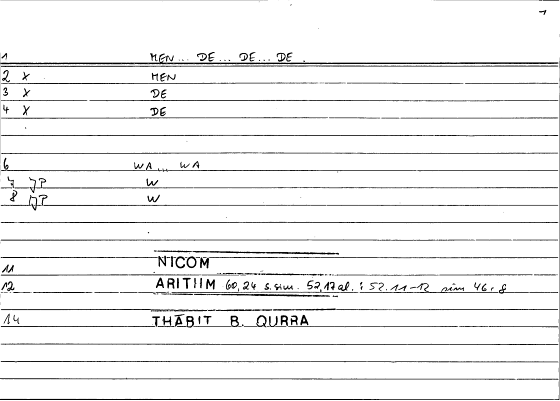 1
1 MEN ... DE ... DE ... DE .
2 X MEN
3 X DE
4 X DE
6 WA ... WA
7 W
8 W
11 NICOM
12 ARITHM 60,24 s. sim. 52,17 al. : 52.11-12 sim 46,8
14 THĀBIT B. QURRA